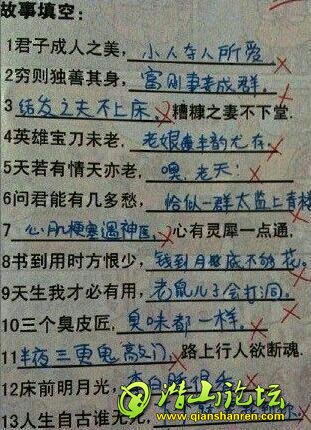 故事填空：
1君子成人之美，小人夺人所爱
2穷则独善其身，富则妻妾成群.
3 结发之夫不上床，糟糠之妻不下堂.
4英雄宝刀未老，老娘丰韵尤存.
5天若有情天亦老，噢，老天
6问君能有几多愁，恰似一群太监上青楼
7 心肌梗塞遇神医，心有灵犀一点通，
8书到用时方恨少，钱到月底不够花.
9天生我才必有用，老鼠儿子会打洞.
10三个臭皮匠，臭味都一样.
11半夜三更鬼敲门，路上行人欲断魂.
12床前明月光，
13人生自古谁无死，
浩山论坛
www.qianshanren.com